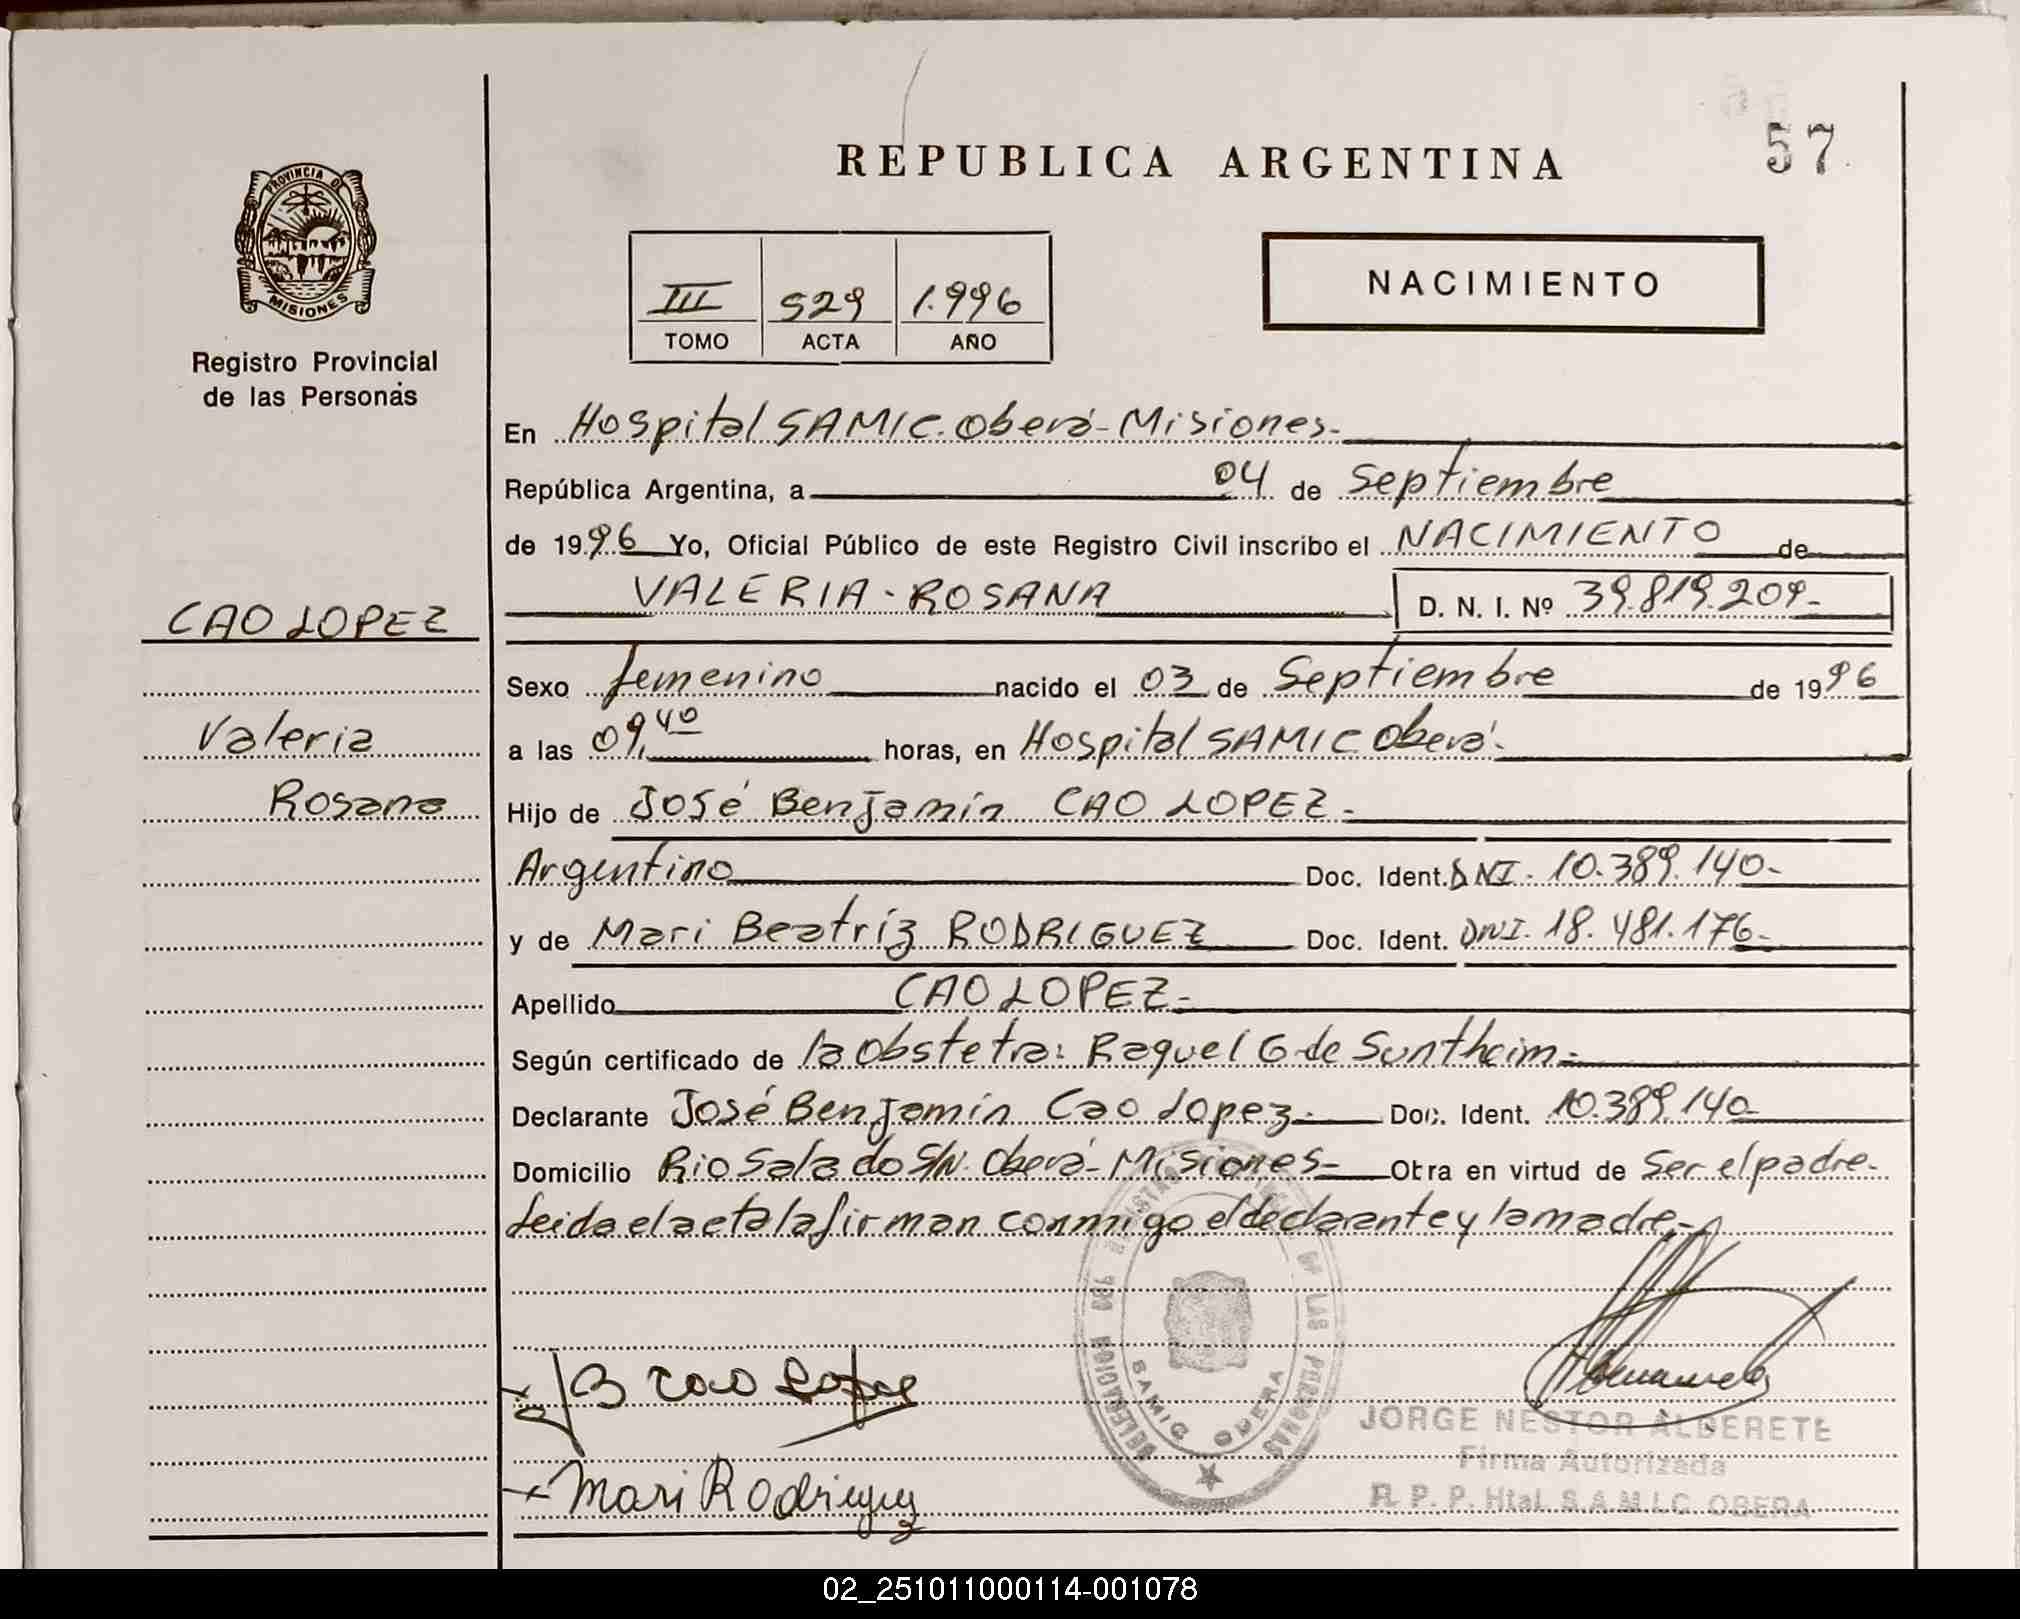 REPUBLICA ARGENTINA
57
PROVINCIA DE
MISIONES
Registro Provincial
de las Personas
III 529 1.996
TOMO ACTA AÑO
NACIMIENTO
En Hospital SAMIC. Oberá - Misiones.-
República Argentina, a 04 de Septiembre
de 1996 Yo, Oficial Público de este Registro Civil inscribo el NACIMIENTO de
VALERIA - ROSANA D. N. I. Nº 39.819.209-
CAO LOPEZ
Valeria
Rosana
Sexo femenino nacido el 03 de Septiembre de 1996
a las 09,40 horas, en Hospital SAMIC Oberá.-
Hijo de José Benjamín CAO LOPEZ.-
Argentino Doc. Ident. DNI. 10.389.140-
y de Mari Beatríz RODRIGUEZ Doc. Ident. DNI. 18.481.176-
Apellido CAO LOPEZ-
Según certificado de la obstetra: Raquel G de Suntheim.-
Declarante José Benjamín Cao Lopez.- Doc. Ident. 10.389.140-
Domicilio Rio Salado S/N. Oberá - Misiones- Otra en virtud de Ser el padre.
Leida el acta la firman conmigo el declarante y la madre.-
J B Cao Lopez
Mari Rodriguez
DELEGACION DEL REGISTRO DE LAS PERSONAS
SAMIC OBERA
JORGE NESTOR ALDERETE
Firma Autorizada
R. P. P. Htal. S.A.M.I.C. OBERA
02_251011000114-001078